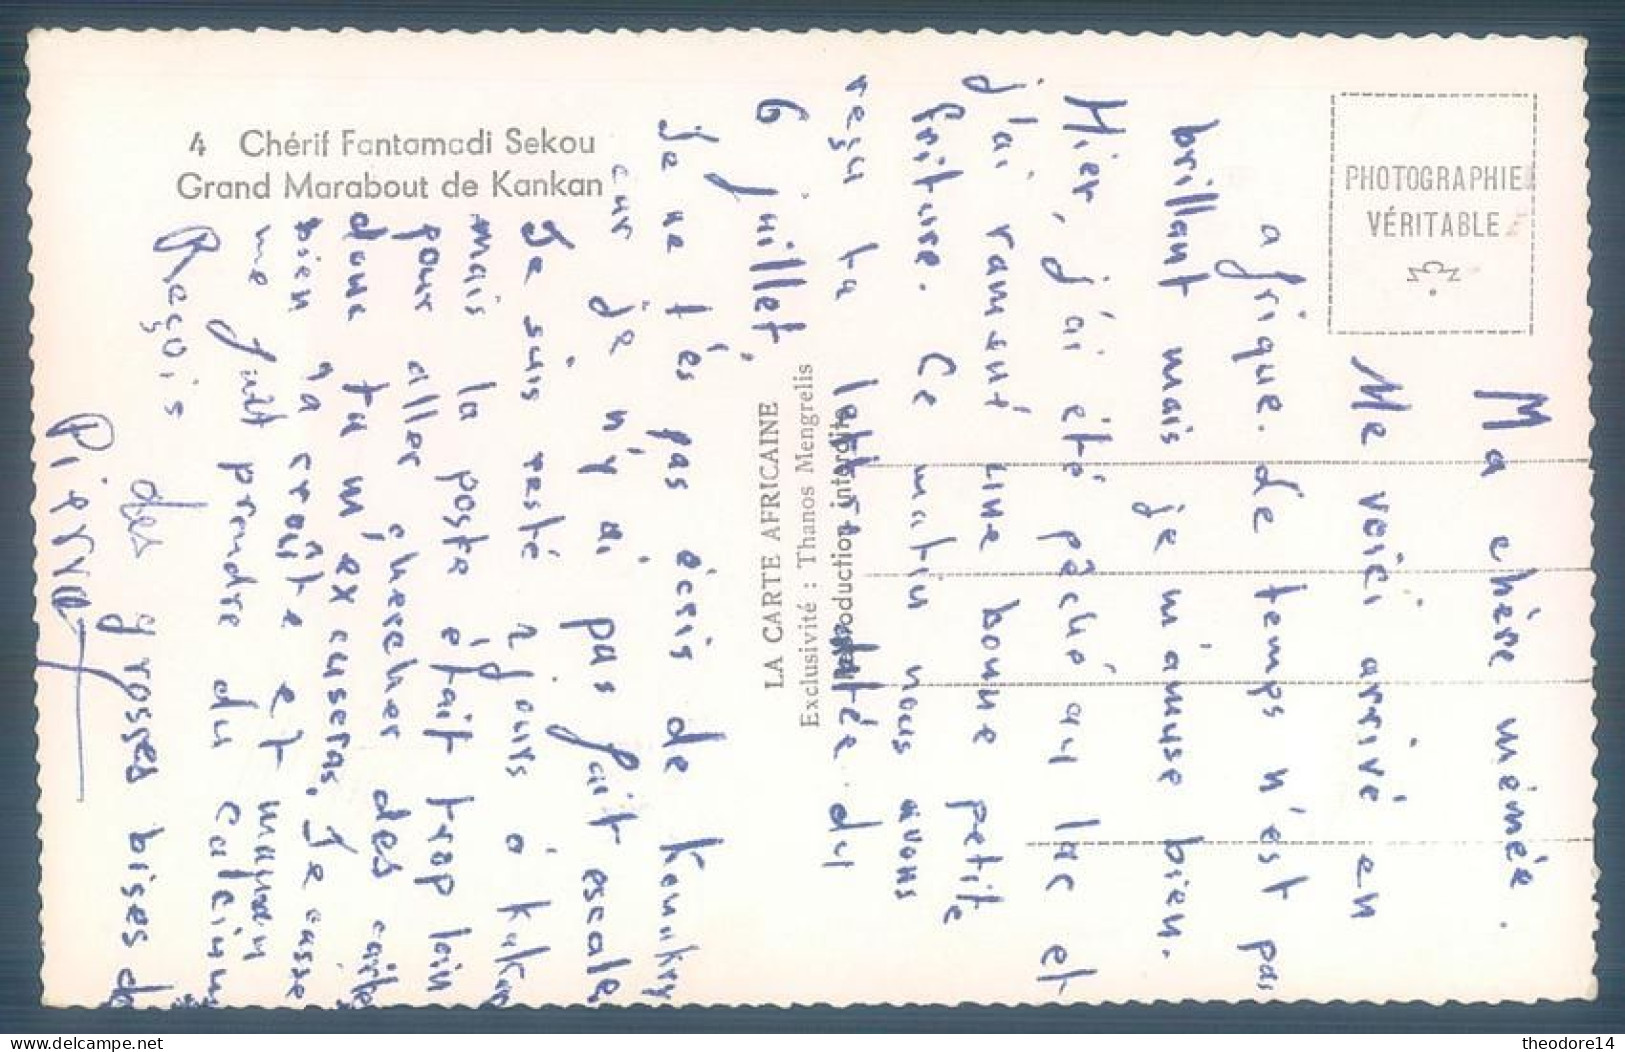 4 Chérif Fantamadi Sekou
Grand Marabout de Kankan
PHOTOGRAPHIE
VÉRITABLE
LA CARTE AFRICAINE
Exclusivité : Thanos Mengrelis
Reproduction interdite
Ma chère mémée.
Me voici arrivé en
afrique. de temps n'est pas
brillant mais je m'amuse bien.
Hier, j'ai été pêché au lac et
j'ai ramené une bonne petite
friture. Ce matin nous avons
reçu ta lettre datée du
6 juillet.
Je ne t'es pas écris de
car je n'y ai pas fait escale.
Je suis resté 2 jours à
mais la poste était trop loin
pour aller chercher des carte
donc tu m'excuseras. Je casse
bien la croûte et maman
me fait prendre du
Reçois des grosses bises de
Pierrot
delcampe.net
theodore14